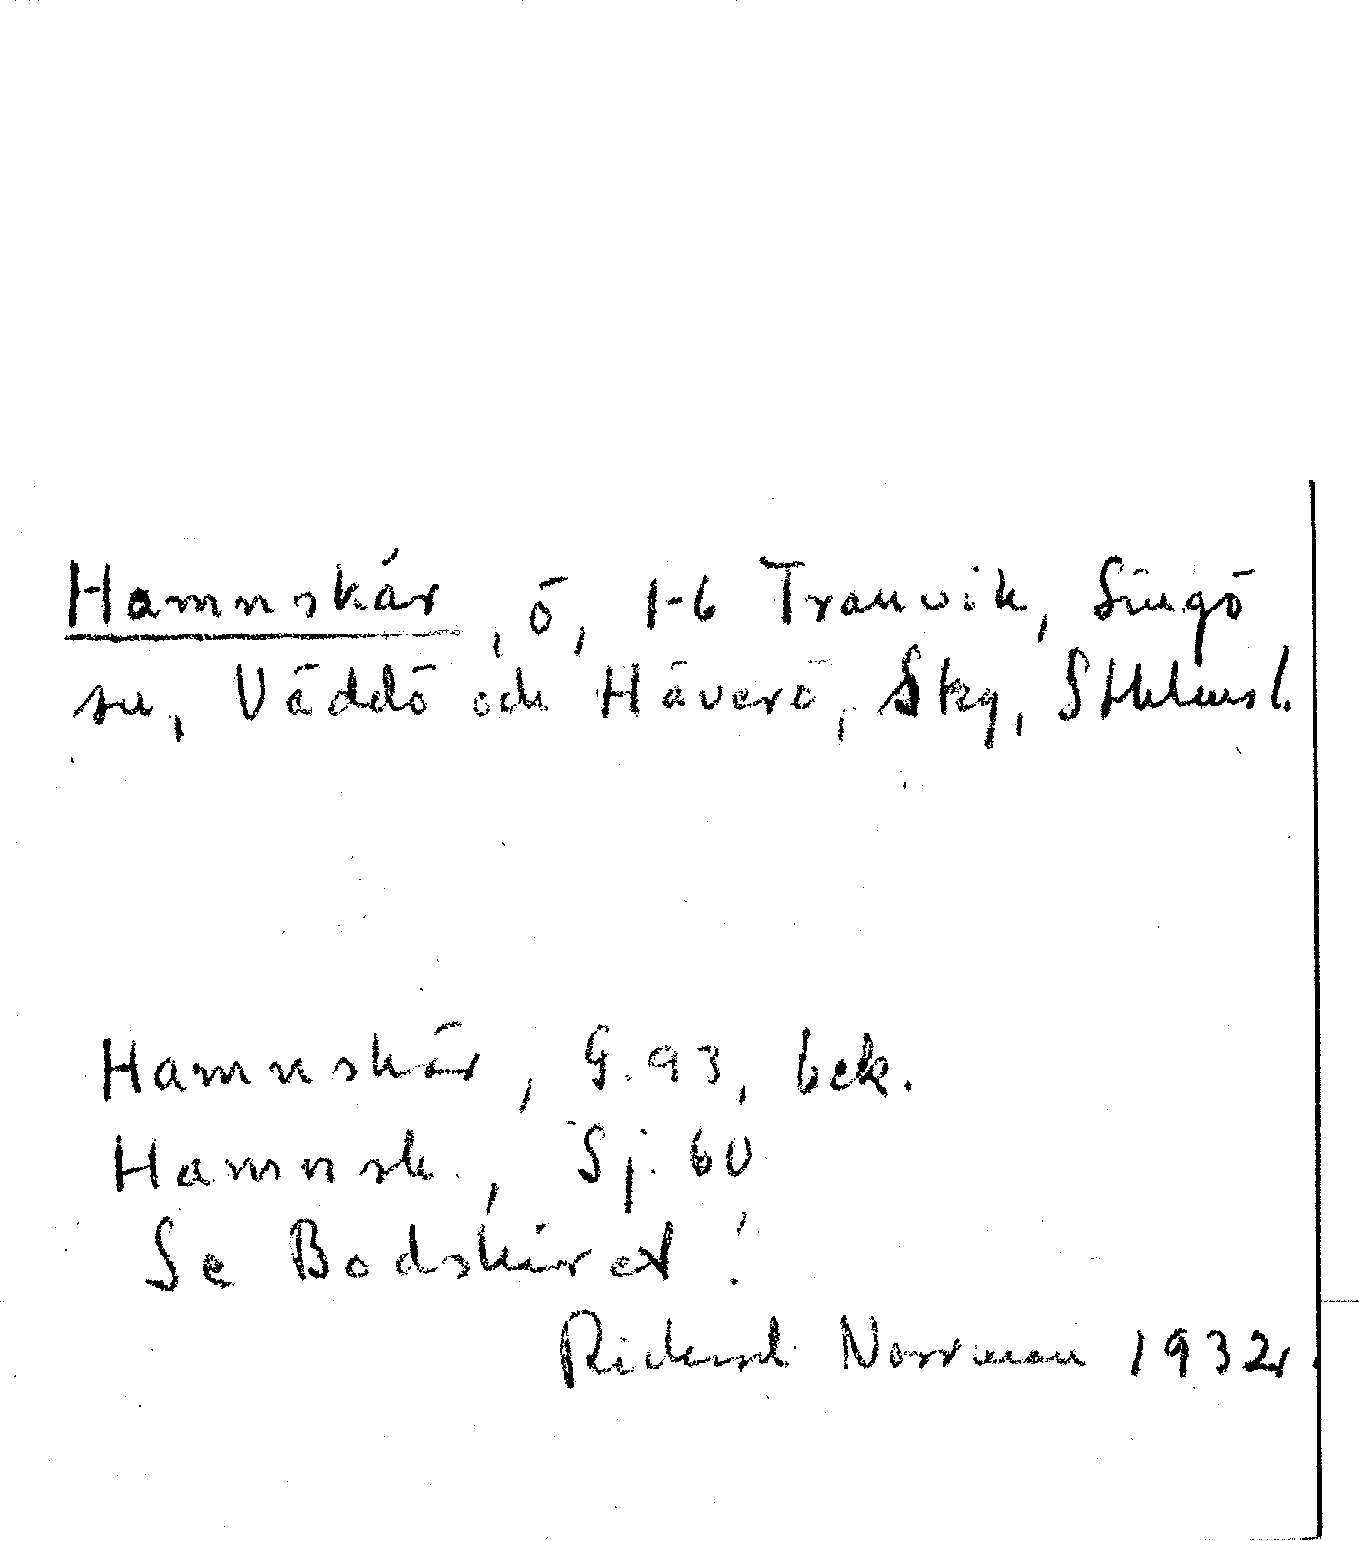 Hamnskär, ö, 1-6 Tranvik, Singö
sn, Väddö och Häverö, Skg, Sthlms l.
Hamnskär, G. 93, bek.
Hamnsk., Sj. 60
Se Bodskäret!
Rickard Norrman 1932.